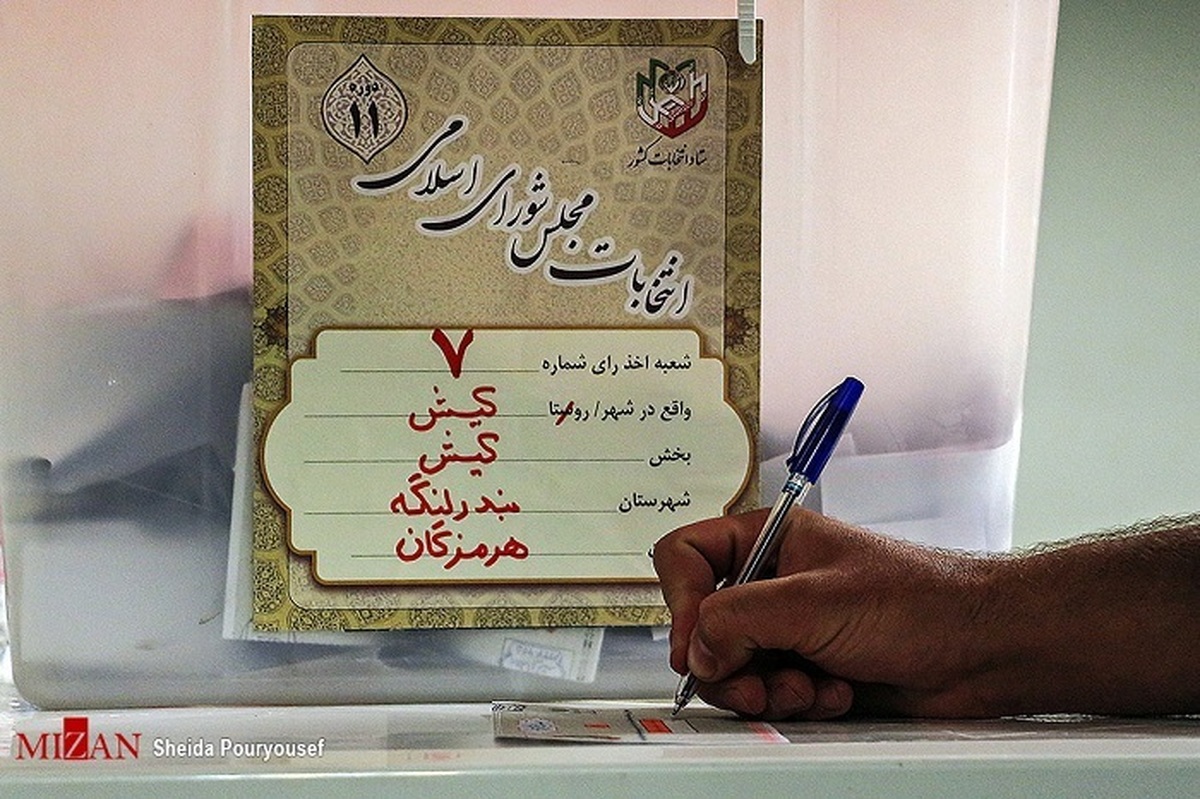 دوره
۱۱
ستاد انتخابات کشور
انتخابات مجلس شورای اسلامی
شعبه اخذ رای شماره ۷
واقع در شهر/ روستا کیش
بخش کیش
شهرستان بندرلنگه
هرمزگان
MIZAN Sheida Pouryousef